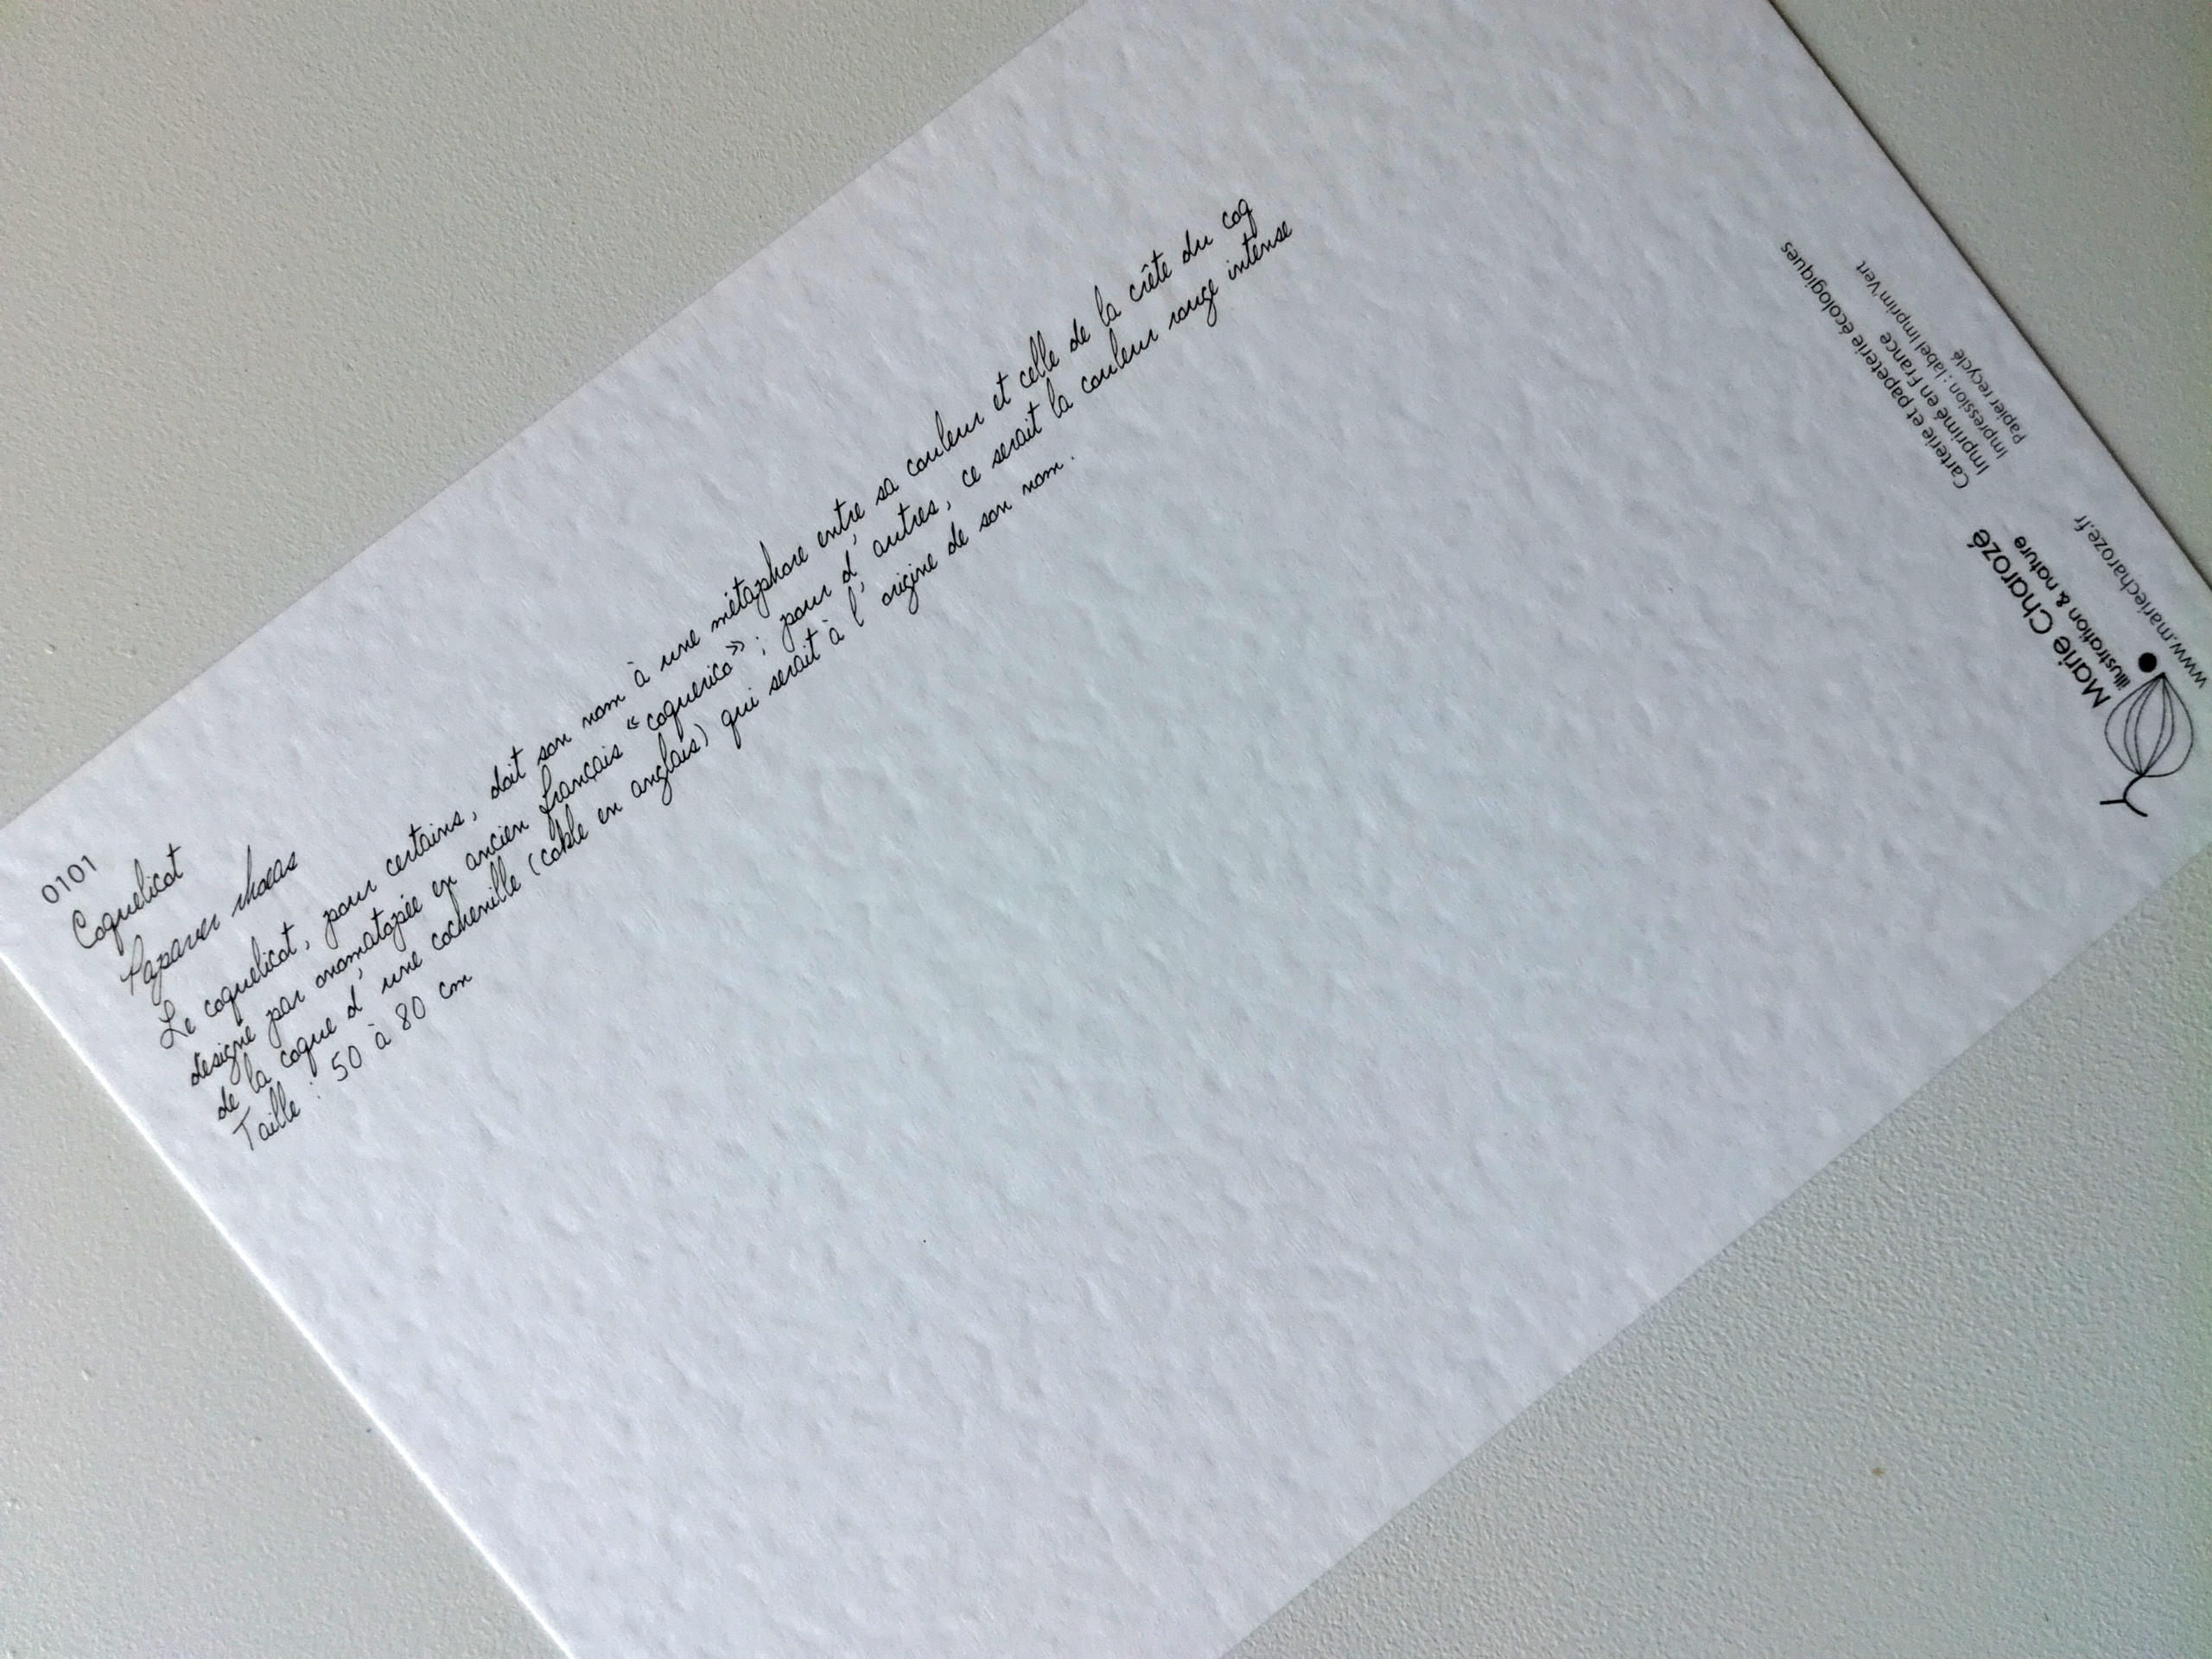 0101
Coquelicot
Papaver rhoeas
Le coquelicot, pour certains, doit son nom à une métaphore entre sa couleur et celle de la crête du coq
désigné par onomatopée en ancien français "coquerico"; pour d'autres, ce serait la couleur rouge intense
de la coque d'une cochenille (cokle en anglais) qui serait à l'origine de son nom.
Taille : 50 à 80 cm
Marie Charozé
illustration & nature
www.mariecharoze.fr
Carterie et papeterie écologiques
Imprimé en France
Impression : label Imprim'Vert
Papier recyclé